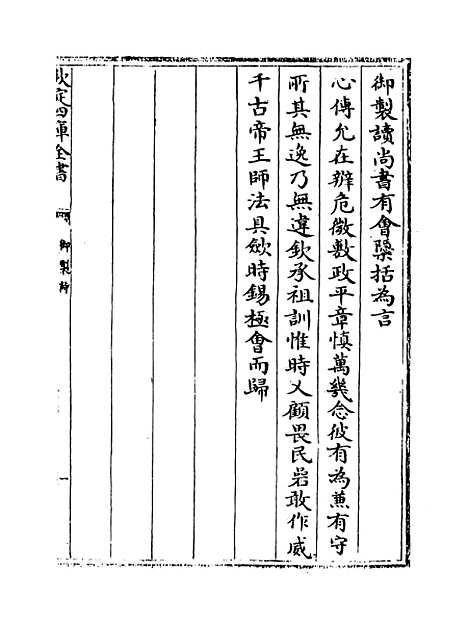 御製讀尚書有會檃括為言
心傳允在辨危微敷政平章慎萬幾念彼有為兼有守
所其無逸乃無違欽承祖訓惟時乂顧畏民碞敢作威
千古帝王師法具斂時錫極會而歸
欽定四庫全書
御製詩
一